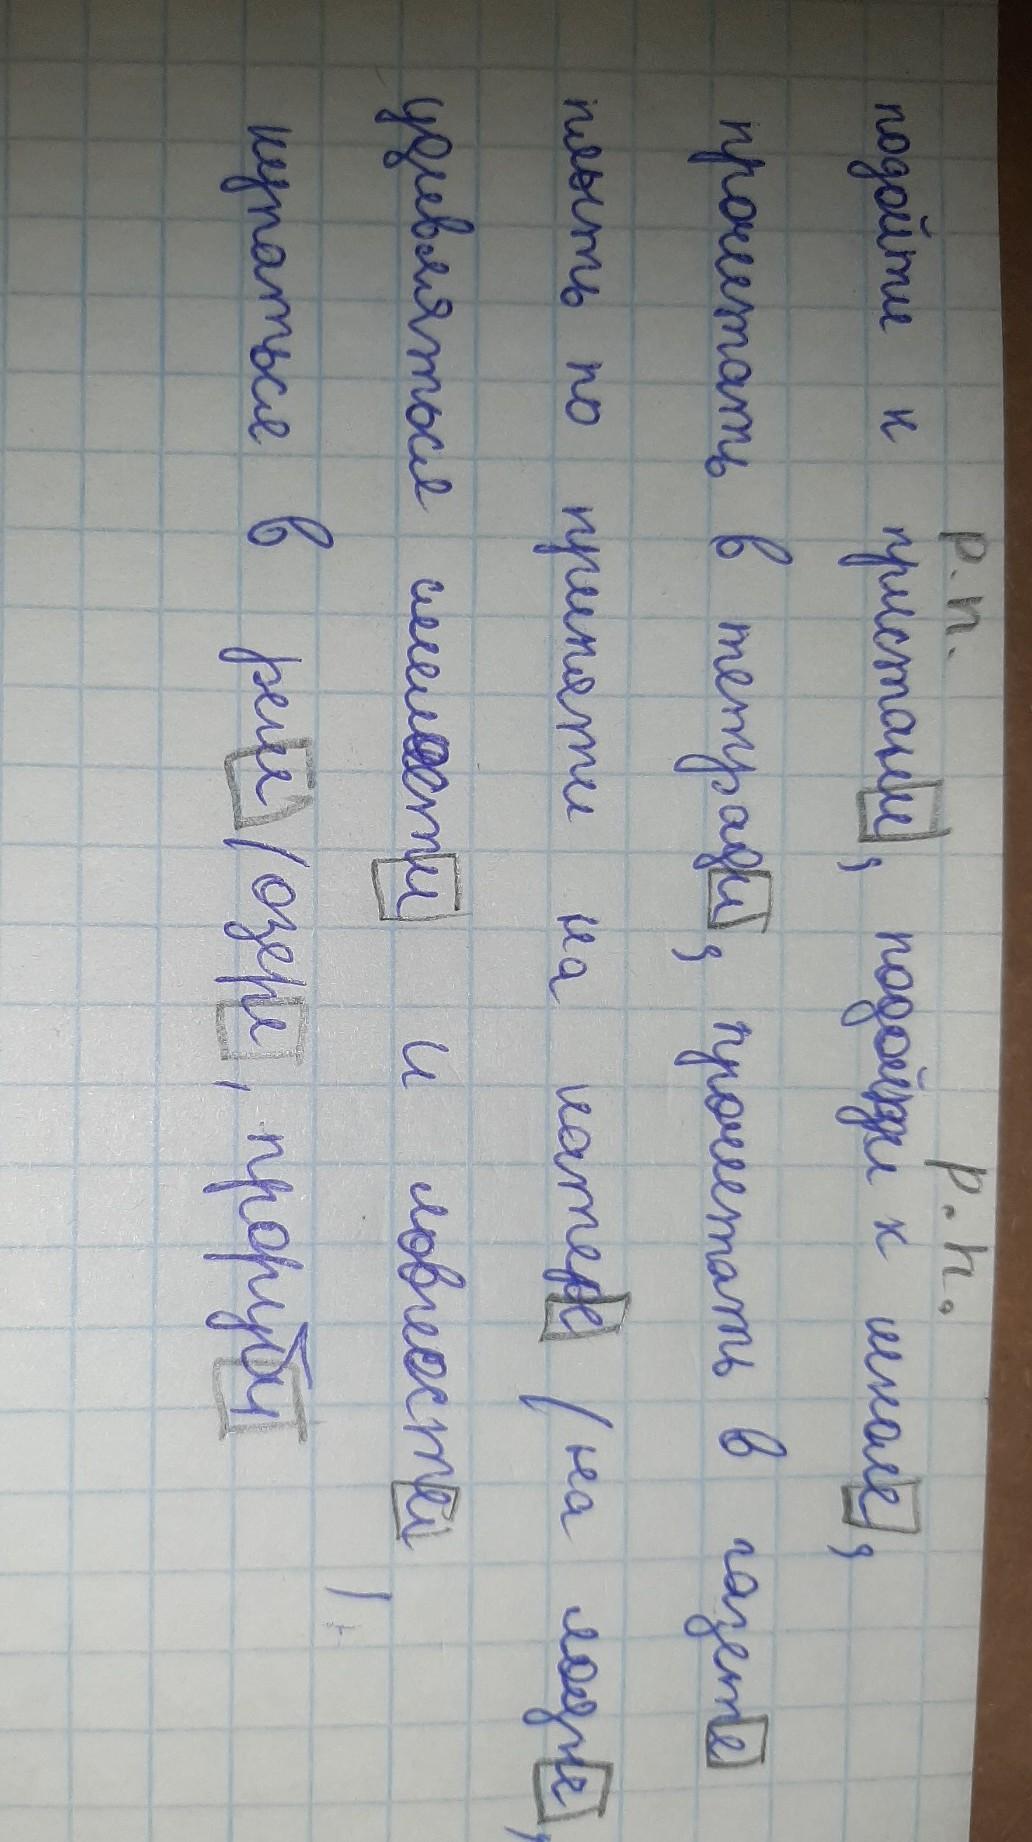 р.п. р.п.
подойти к пристани, подойди к школе,
прочитать в тетради, прочитать в газете
плыть по приняти на катере /на лодке,
удивляться смелости и ловкости
купаться в реки /озере, проруби